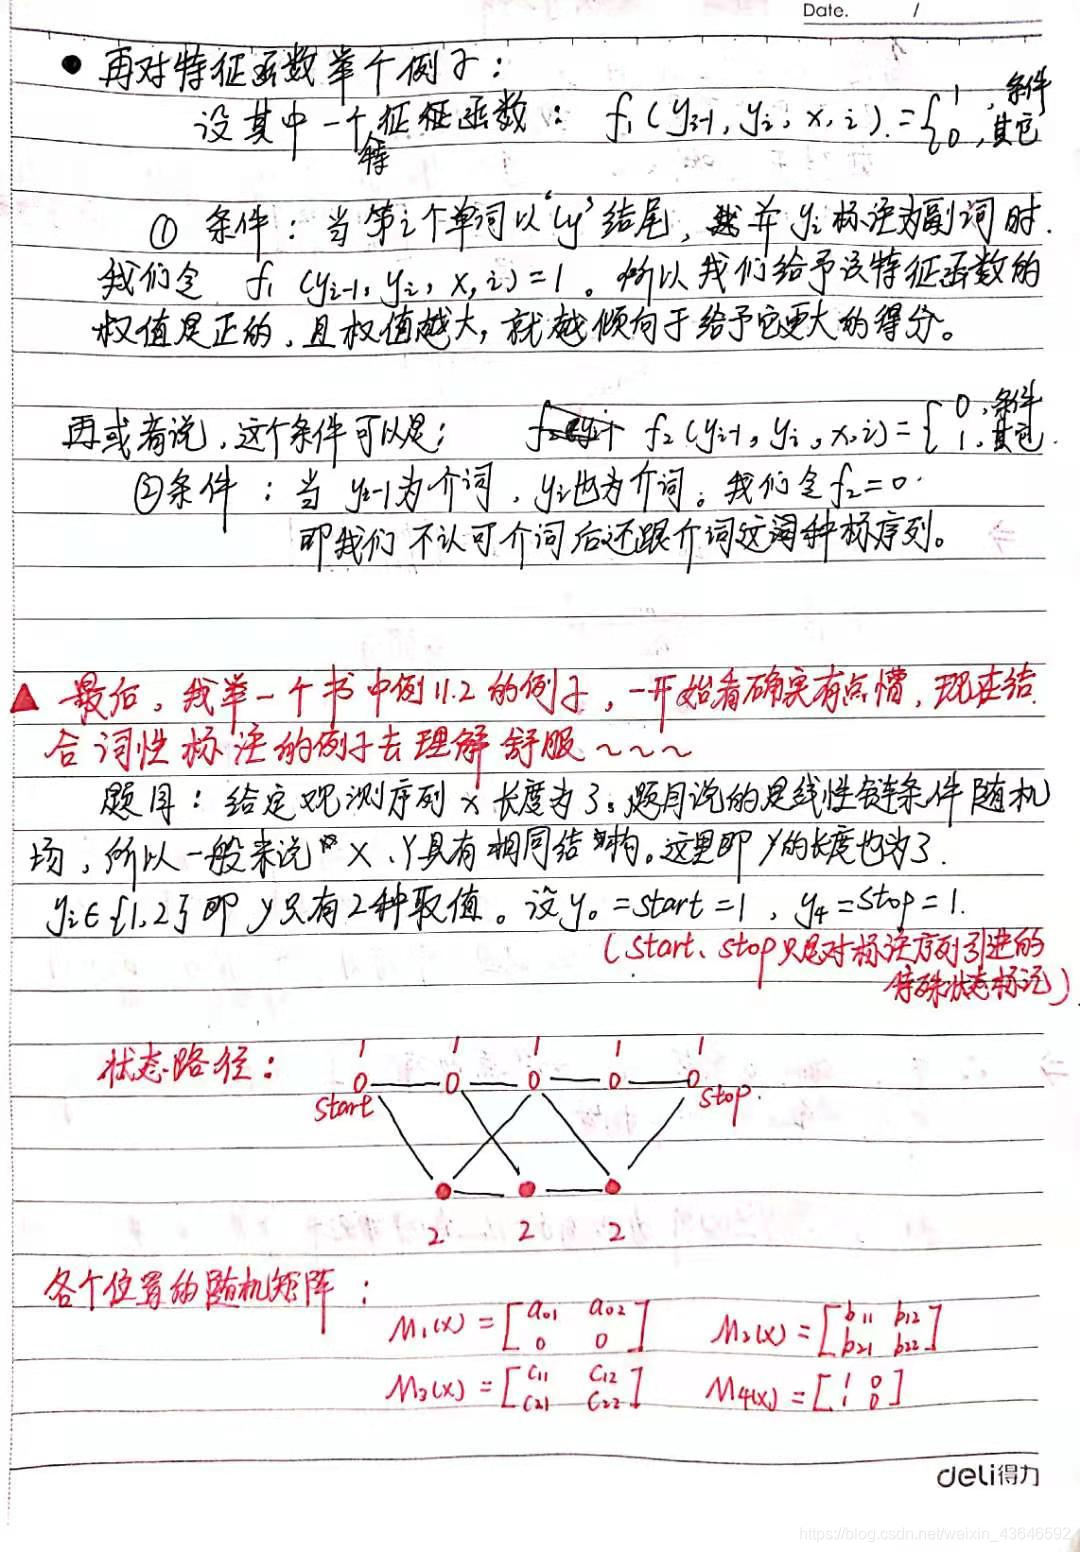 Date. /
● 再对特征函数举个例子：
设其中一个特征函数： f₁(yᵢ₋₁, yᵢ, x, i) = { 1, 条件
0, 其它
① 条件：当第i个单词以“ly”结尾，并yᵢ标注为副词时.
我们令 f₁(yᵢ₋₁, yᵢ, x, i)=1。所以我们给予该特征函数的
权值是正的，且权值越大，就越倾向于给予它更大的得分。
再或者说，这个条件可以是； f₂(yᵢ₋₁, yᵢ, x, i) = { 0, 条件
1, 其它.
②条件：当 yᵢ₋₁为介词，yᵢ也为介词。我们令f₂=0.
即我们不认可介词后还跟介词这种标序列。
▲ 最后，我举一个书中例11.2的例子，一开始看确实有点懵，现在结
合词性标注的例子去理解舒服~~~
题目：给定观测序列x长度为3。题目说的是线性链条件随机
场，所以一般来说 X、Y具有相同结构。这里即y的长度也为3.
yᵢ∈{1,2}即y只有2种取值。设y₀=start=1，y₄=stop=1.
(start、stop只是对标注序列引进的
特殊状态标记)
状态路径： 1 1 1 1 1
start stop.
2 2 2
各个位置的随机矩阵：
M₁(x) = [a₀₁ a₀₂ M₂(x) = [b₁₁ b₁₂
0 0] b₂₁ b₂₂]
M₃(x) = [c₁₁ c₁₂ M₄(x) = [1 0
c₂₁ c₂₂] 1 0]
deli得力
https://blog.csdn.net/weixin_43646592